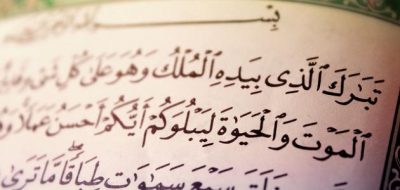 بِسْ
تَبَـٰرَكَ ٱلَّذِى بِيَدِهِ ٱلْمُلْكُ وَهُوَ عَلَىٰ كُلِّ شَىْءٍ
ٱلْمَوْتَ وَٱلْحَيَوٰةَ لِيَبْلُوَكُمْ أَيُّكُمْ أَحْسَنُ عَمَلًا
خَلَقَ سَبْعَ سَمَـٰوَٰتٍ طِبَاقًا مَّا تَرَىٰ